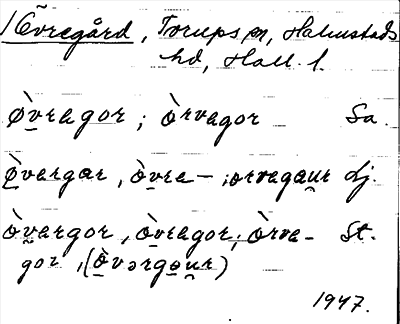 1 Övregård, Torups sn, Halmstads
hd, Hall. l.
øvragor ; òrvagor Sa.
øvargar, òvra— ; orvagau̯r Lj.
òvargor, òvragor, òrva- St.
gor, (òvərgəu̯r)
1947.